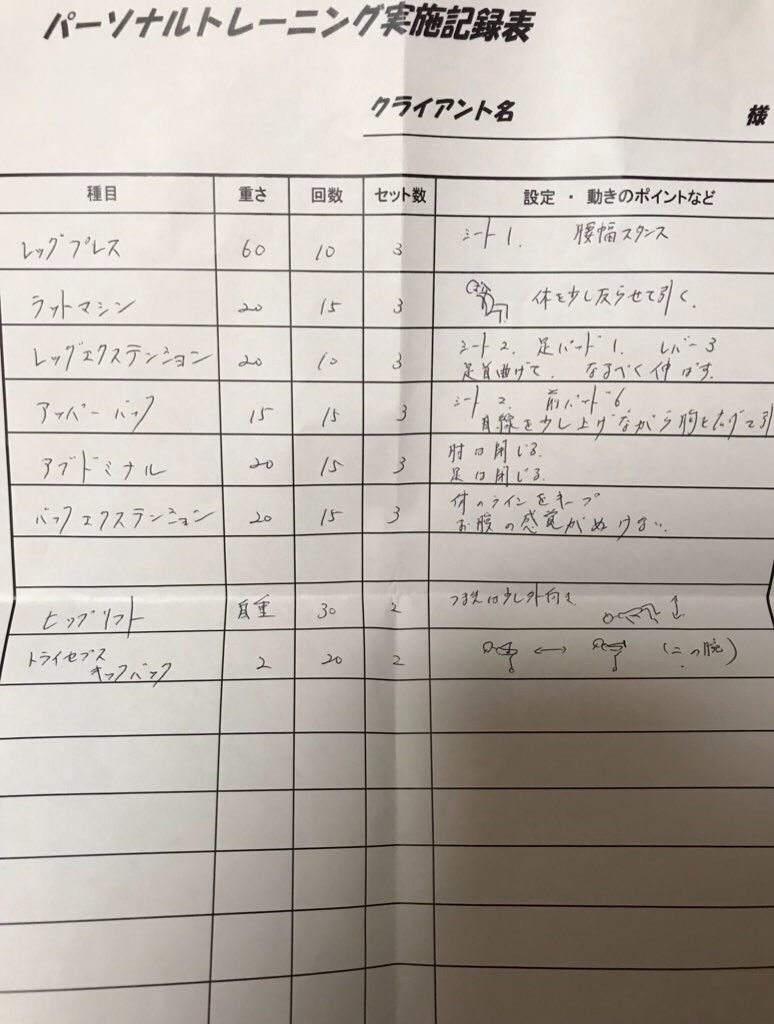 パーソナルトレーニング実施記録表
クライアント名 様
種目 重さ 回数 セット数 設定・動きのポイントなど
レッグプレス 60 10 3 シート1. 腰幅スタンス
ラットマシン 20 15 3 体を少し反らせて引く.
レッグエクステンション 20 10 3 シート2. 足パッド1. レバー3
足首曲げて. なるべく伸ばす.
アッパーバック 15 15 3 シート2. 前パッド6
目線を少し上げながら胸を広げて引
アブドミナル 20 15 3 肘は閉じる.
足は閉じる.
バックエクステンション 20 15 3 体のラインをキープ
お腹の感覚がぬけない.
ヒップリフト 自重 30 2 つま先は少し外向き
トライセプス
キックバック 2 20 2 (二の腕)